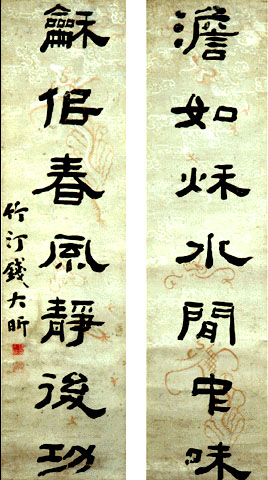 澹如秋水閒中味
龢佀春風靜後功
竹汀錢大昕